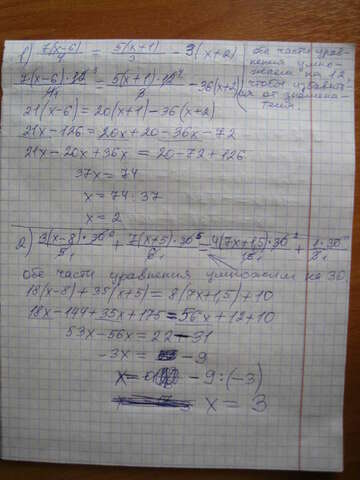 1) 7(x-6)/4 = 5(x+1)/3 - 3(x+2)
обе части уравнения умножаем на 12, чтобы избавиться от знаменателя.
7(x-6)·12³/4₁ = 5(x+1)·12⁴/3 - 36(x+2)
21(x-6) = 20(x+1) - 36(x+2)
21x - 126 = 20x + 20 - 36x - 72
21x - 20x + 36x = 20 - 72 + 126
37x = 74
x = 74 : 37
x = 2
2) 3(x-8)·30⁶/5₁ + 7(x+5)·30⁵/6₁ = 4(7x+1,5)·30²/15₁ + 1·30/3₁
обе части уравнения умножаем на 30.
18(x-8) + 35(x+5) = 8(7x+1,5) + 10
18x - 144 + 35x + 175 = 56x + 12 + 10
53x - 56x = 22 - 31
-3x = -9
x = -9 : (-3)
x = 3